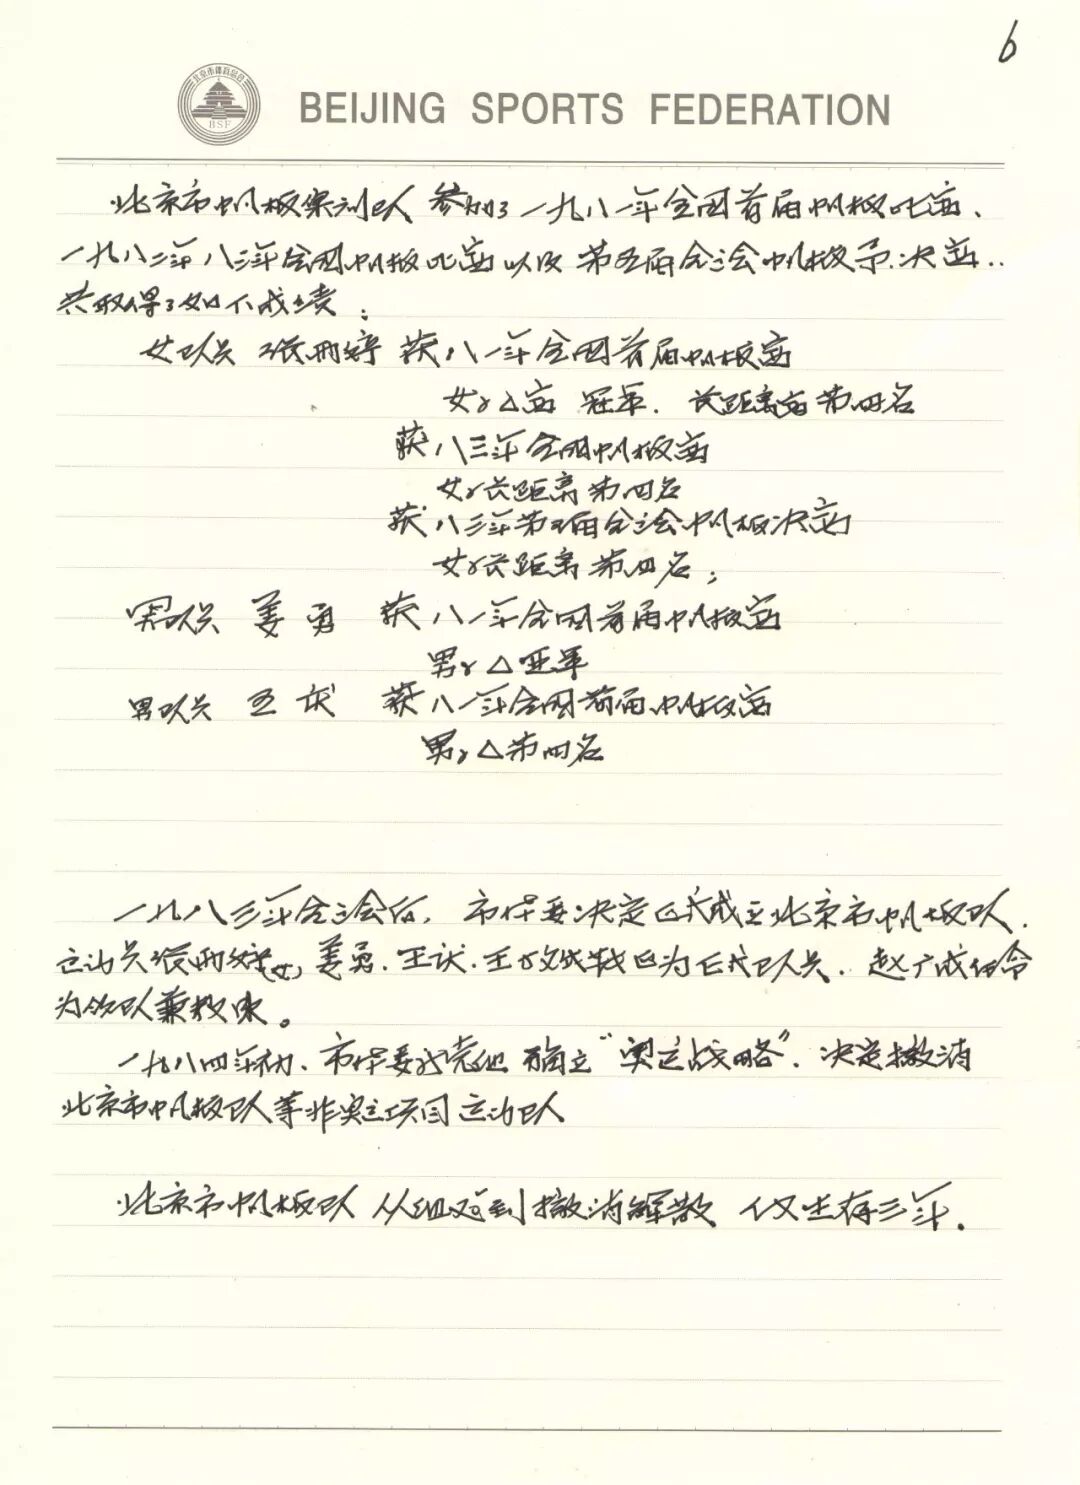 6
北京市体育总会
BSF
BEIJING SPORTS FEDERATION
北京市帆板集训队 参加了一九八一年全国首届帆板比赛、
一九八二年八三年全国帆板比赛以及第五届全运会帆板予、决赛..
共取得了如下成绩：
女队员 张 获八一年全国首届帆板赛
女子△赛 冠军. 长距离赛第四名
获八三年全国帆板赛
女子长距离第四名
获八三年第五届全运会帆板决赛
女子长距离第四名；
男队员 姜勇 获八一年全国首届帆板赛
男子△亚军
男队员 王 获八一年全国首届帆板赛
男子△第四名
一九八三年全运会后，市体委决定正式成立北京市帆板队.
运动员张(女)姜勇.王.王转为正式队员. 赵广成任命
为领队兼教练。
一九八四年初. 市体委确立“奥运战略”. 决定撤消
北京市帆板队等非奥运项目运动队
北京市帆板队从组建到撤消解散 仅生存三年.